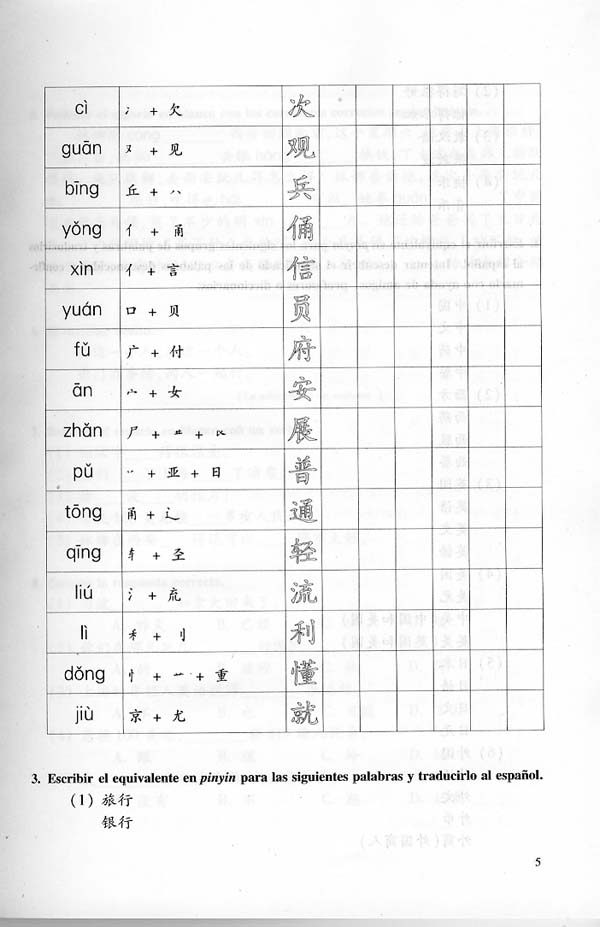 cì 冫 + 欠 次
guān 又 + 见 观
bīng 丘 + 八 兵
yǒng 亻 + 甬 俑
xìn 亻 + 言 信
yuán 口 + 贝 员
fǔ 广 + 付 府
ān 宀 + 女 安
zhǎn 尸 + 龷 + 展
pǔ 丷 + 亚 + 日 普
tōng 甬 + 辶 通
qīng 车 + 圣 轻
liú 氵 + 㐬 流
lì 禾 + 刂 利
dǒng 忄 + 艹 + 重 懂
jiù 京 + 尤 就
3. Escribir el equivalente en pinyin para las siguientes palabras y traducirlo al español.
(1) 旅行
银行
5